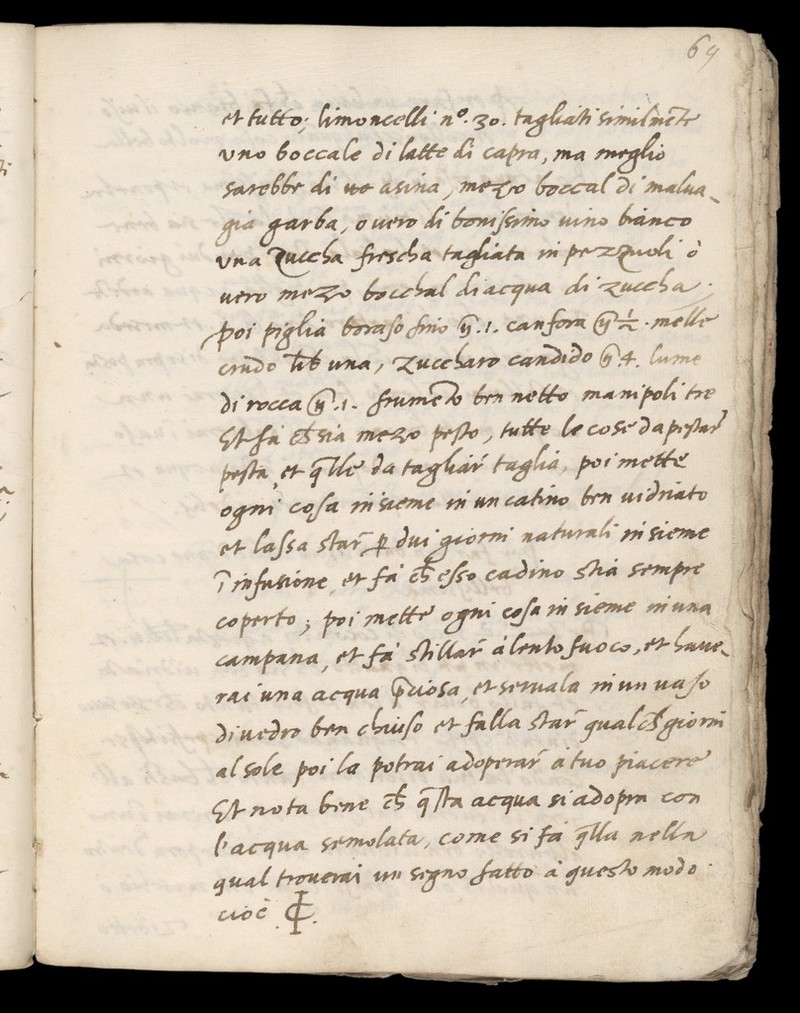 69
et tutto; limoncelli nº. 30. tagliati similmẽte
uno boccale di latte di capra, ma meglio
sarebbe di asina, mezo boccal di malua-
gia garba, o uero di bonissimo uino bianco
una Zuccha frescha tagliata in pezzuoli ò
uero mezo bocchal di acqua di zuccha.
poi piglia boraso fino ℥.1. canfora ℥ ½. melle
crudo lib una, zuccharo candido ℥.4. lume
di rocca ℥.1. frumẽto ben netto manipoli tre
Et fà ch̃ sia mezo pesto, tutte le cose da pestar̃
pesta, et q̃lle da tagliar̃ taglia, poi mette
ogni cosa insieme in un catino ben uidriato
et lassa star̃ ꝑ dui giorni naturali insieme
ĩ infusione, et fà ch̃ esso cadino stia sempre
coperto; poi mette ogni cosa insieme in una
campana, et fà stillar̃ à lento fuoco, et haue-
rai una acqua p̃ciosa, et seruala in un uaso
di uedro ben chiuso et falla star̃ qualch̃ giorni
al sole poi la potrai adoperar̃ à tuo piacere
Et nota bene ch̃ q̃sta acqua si adopra con
l'acqua semolata, come si fà q̃lla nella
qual trouerai un segno fatto à questo modo
cioè